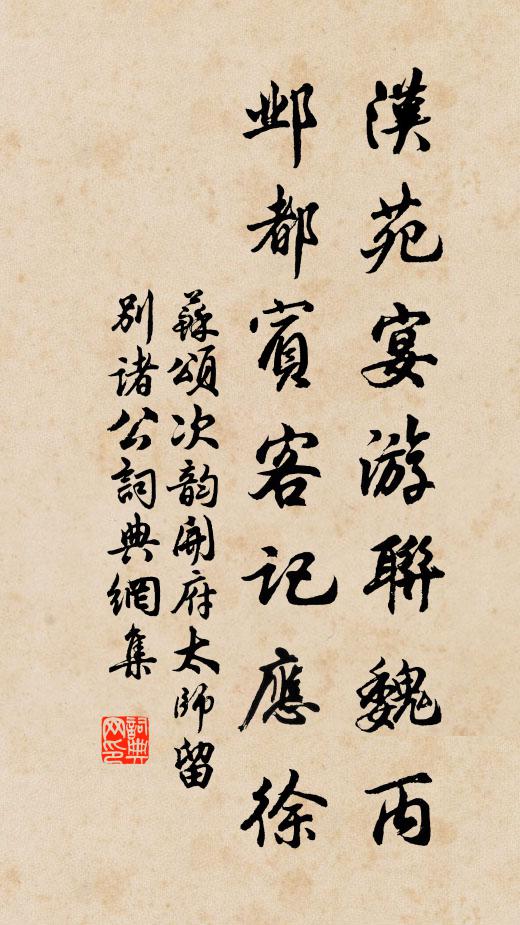 漢苑宴游聯魏丙
邺都賓客記應徐
蘇頌次韵開府太師留
别諸公詞典網集
詞典网印